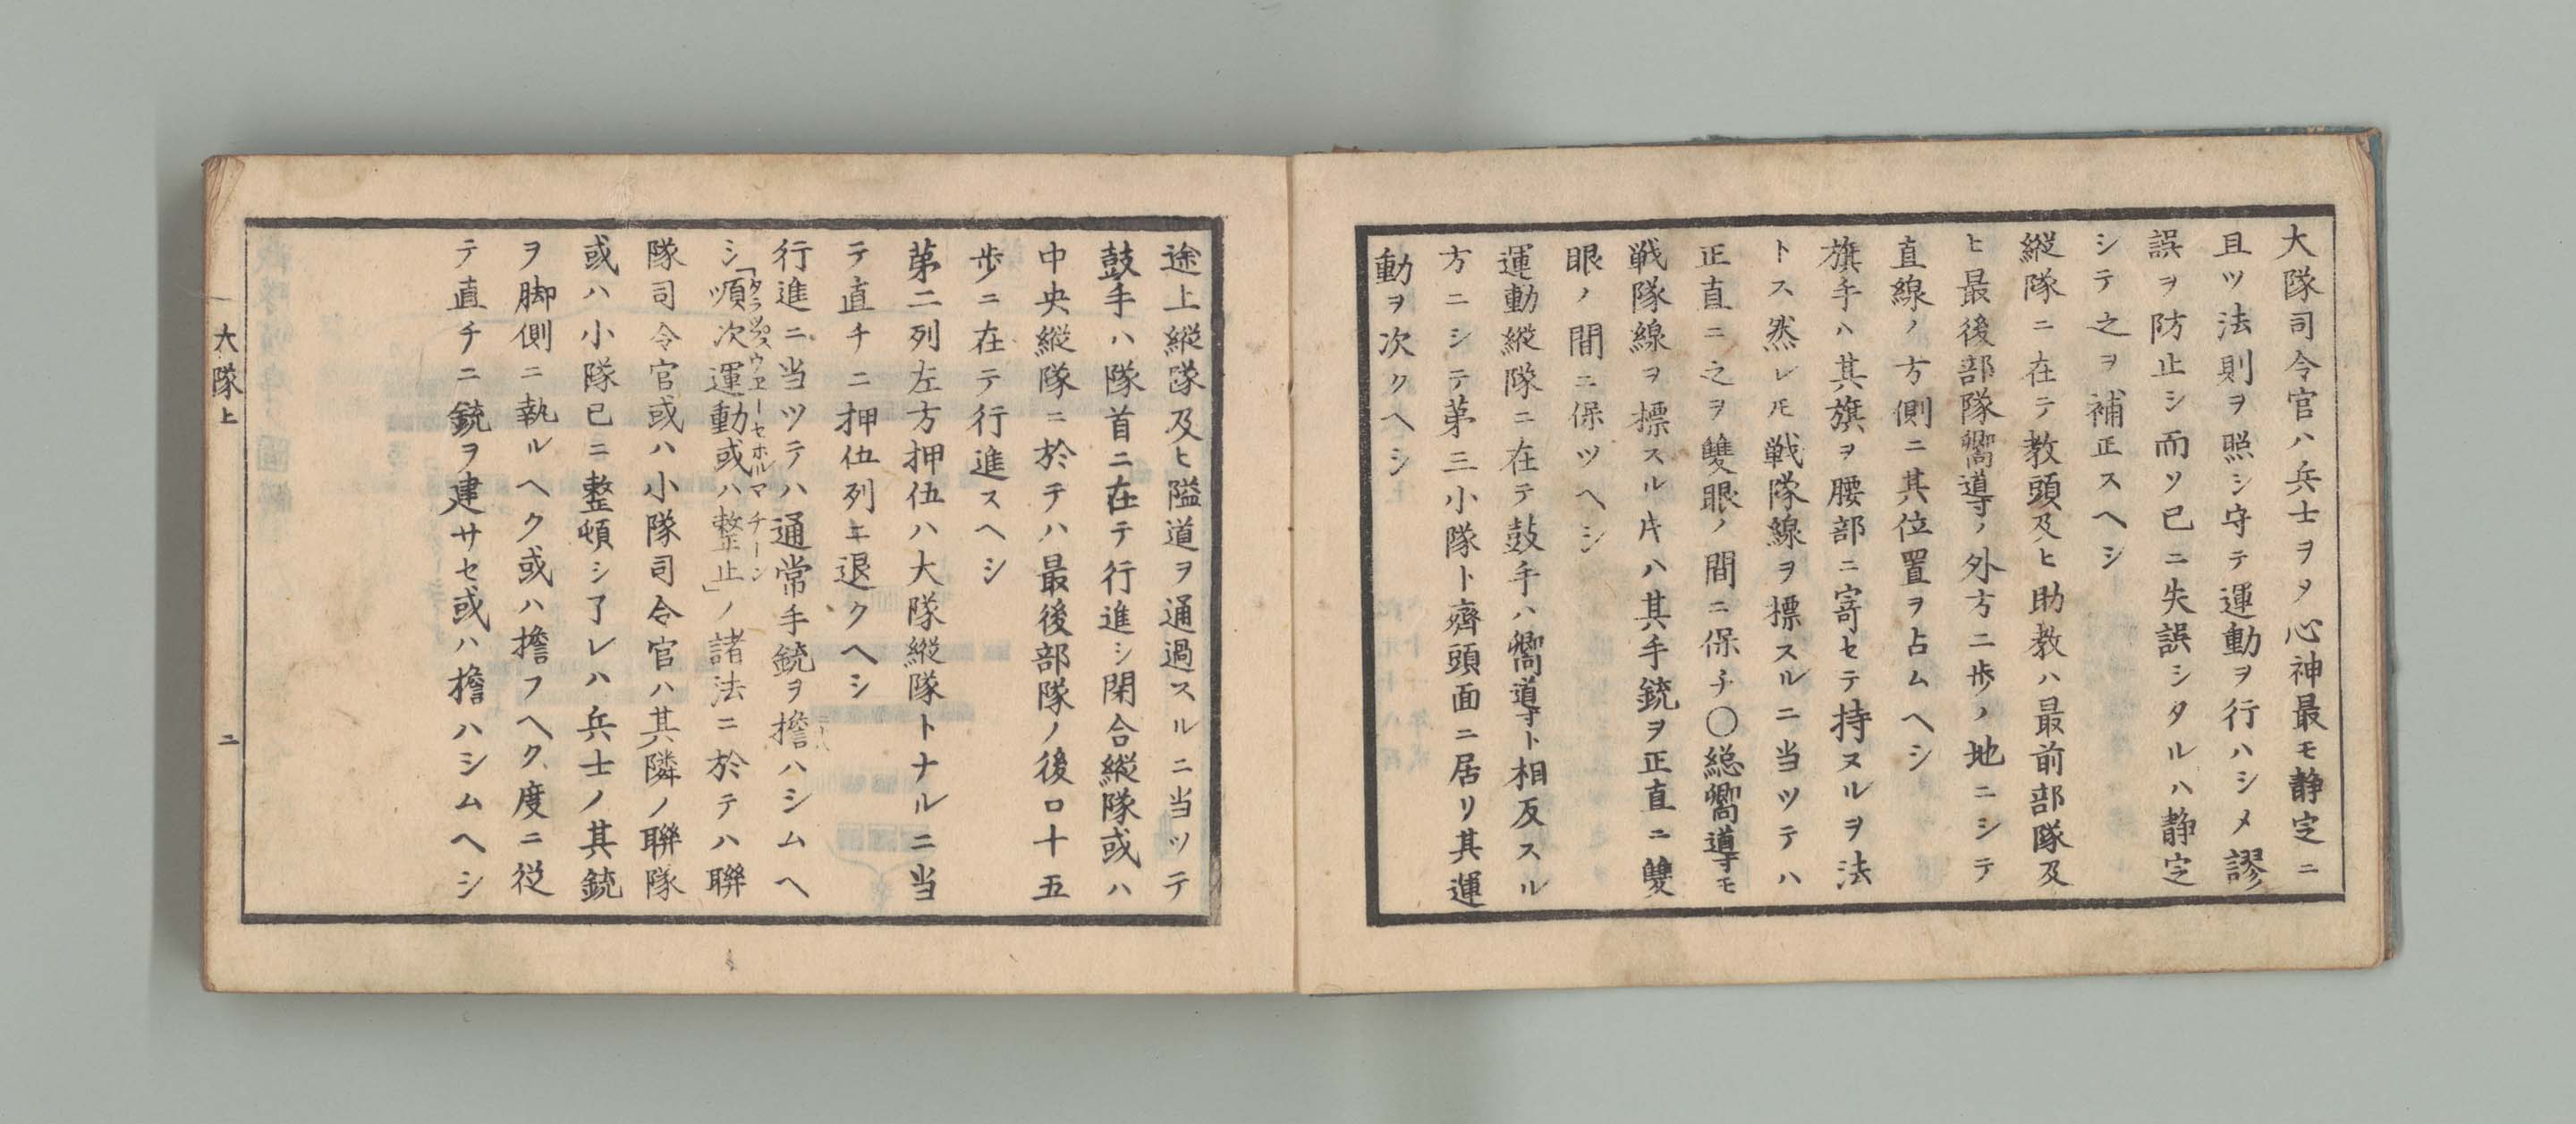 大隊司令官ハ兵士ヨリ心神最モ静定ニ
且ツ法則ヲ照シ守テ運動ヲ行ハシメ謬
誤ヲ防止シ而ソ已ニ失誤シタルハ静定
シテ之ヲ補正スヘシ
縦隊ニ在テ教頭及ヒ助教ハ最前部隊及
ヒ最後部隊嚮導ノ外方二歩ノ地ニシテ
直線ノ方側ニ其位置ヲ占ムヘシ
旗手ハ其旗ヲ腰部ニ寄セテ持ヌルヲ法
トス然レ𪜈戦隊線ヲ標スルニ当ツテハ
正直ニ之ヲ雙眼ノ間ニ保チ〇総嚮導モ
戦隊線ヲ標スル𪜈ハ其手銃ヲ正直ニ雙
眼ノ間ニ保ツヘシ
運動縦隊ニ在テ鼓手ハ嚮導ト相反スル
方ニシテ第三小隊ト齊頭面ニ居リ其運
動ヲ次クヘシ
途上縦隊及ヒ隘道ヲ通過スルニ当ツテ
鼓手ハ隊首ニ在テ行進シ閉合縦隊或ハ
中央縦隊ニ於テハ最後部隊ノ後口十五
歩ニ在テ行進スヘシ
第二列左方押伍ハ大隊縦隊トナルニ当
テ直チニ押伍列ヰ退クヘシ
行進ニ当ツテハ通常手銃ヲ擔ハシムヘ
シ「順次運動或ハ整止」ノ諸法ニ於テハ聯
隊司令官或ハ小隊司令官ハ其隣ノ聯隊
或ハ小隊已ニ整頓シ了レハ兵士ノ其銃
ヲ脚側ニ執ルヘク或ハ擔フヘク度ニ従
テ直チニ銃ヲ建サセ或ハ擔ハシムヘシ
大隊上
二